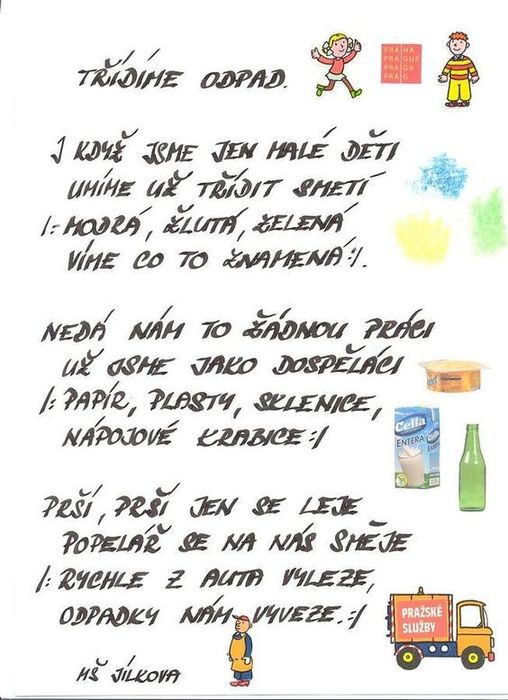 TŘÍDÍME ODPAD.
PRAHA
PRAGUE
PRAGA
PRAG
I KDYŽ JSME JEN MALÉ DĚTI
UMÍME UŽ TŘÍDIT SMETÍ
/: MODRÁ, ŽLUTÁ, ZELENÁ
VÍME CO TO ZNAMENÁ :/.
NEDÁ NÁM TO ŽÁDNOU PRÁCI
UŽ JSME JAKO DOSPĚLÁCI
/: PAPÍR, PLASTY, SKLENICE,
NÁPOJOVÉ KRABICE :/
Cella
ENTERA
PRŠÍ, PRŠÍ JEN SE LEJE
POPELÁŘ SE NA NÁS SMĚJE
/: RYCHLE Z AUTA VYLEZE,
ODPADKY NÁM VYVEZE. :/
PRAŽSKÉ
SLUŽBY
MŠ JÍLKOVA